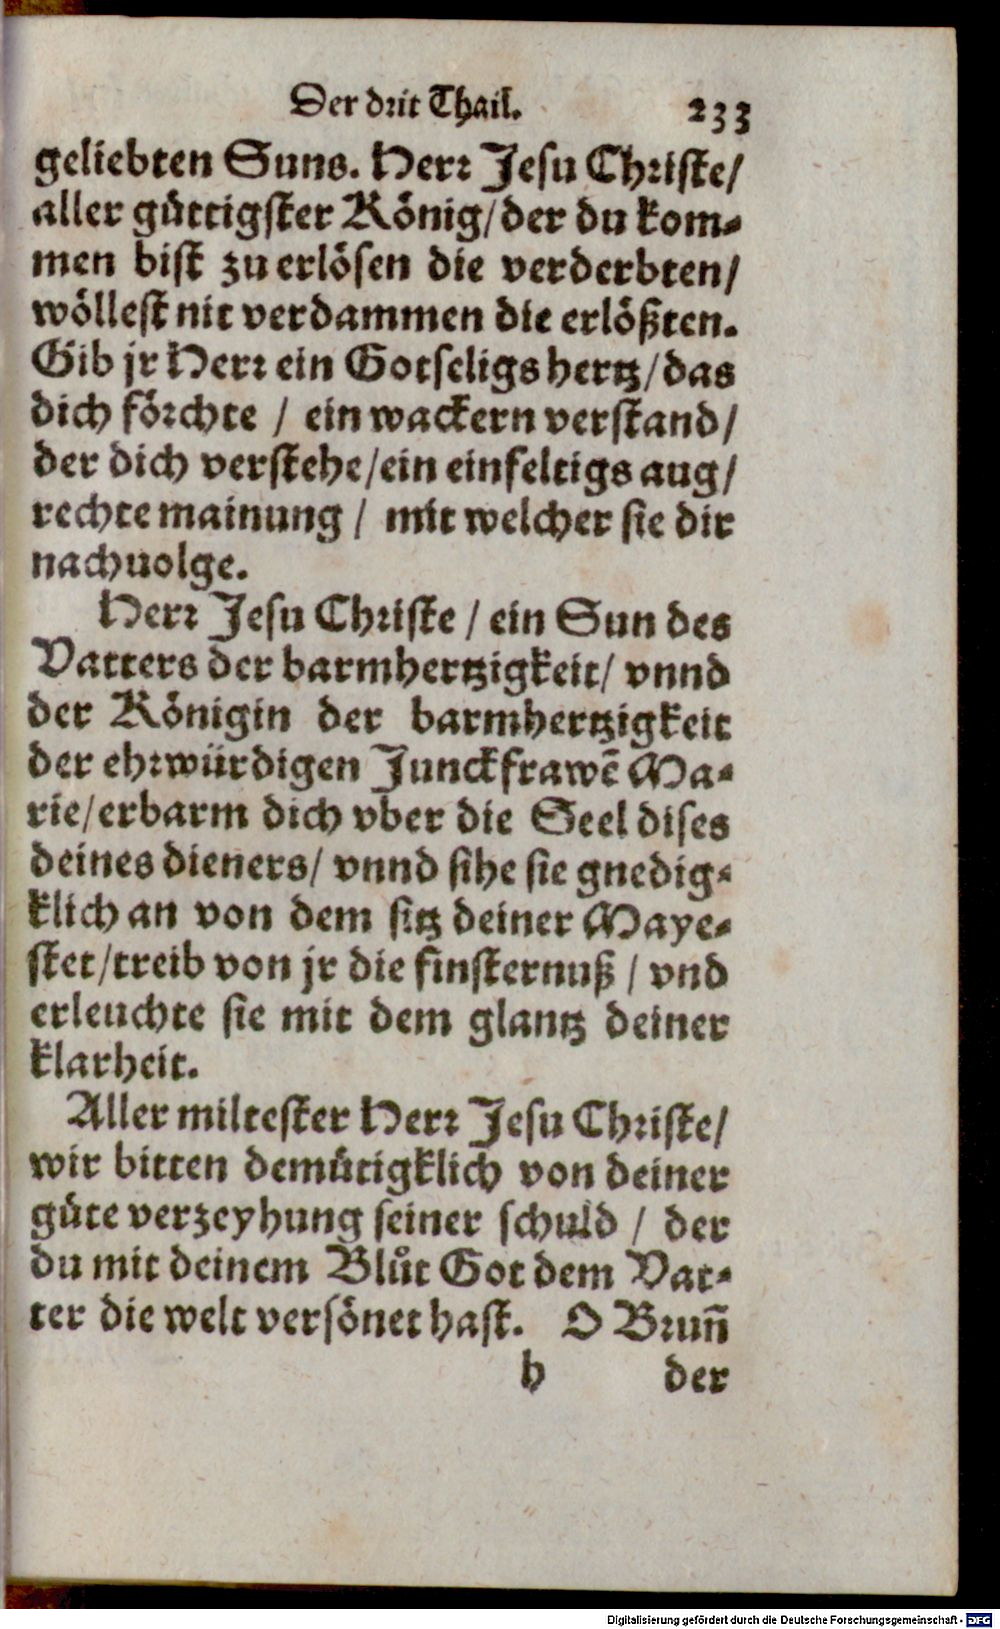 Der drit Thail. 233
geliebten Suns. Herr Jesu Christe/
aller güttigster König/ der du kom-
men bist zu erlösen die verderbten/
wöllest nit verdammen die erlößten.
Gib jr Herr ein Gotseligs hertz/ das
dich förchte / ein wackern verstand/
der dich verstehe/ ein einfeltigs aug/
rechte mainung / mit welcher sie dir
nachuolge.
Herr Jesu Christe / ein Sun des
Vatters der barmhertzigkeit/ vnnd
der Königin der barmhertzigkeit
der ehrwürdigen Junckfrawẽ Ma-
rie/ erbarm dich vber die Seel dises
deines dieners/ vnnd sihe sie gnedig-
klich an von dem sitz deiner Maye-
stet/ treib von jr die finsternuß / vnd
erleuchte sie mit dem glantz deiner
klarheit.
Aller miltester Herr Jesu Christe/
wir bitten demütigklich von deiner
güte verzeyhung seiner schuld / der
du mit deinem Blůt Got dem Vat-
ter die welt versönet hast. O Brun̄
h der
Digitalisierung gefördert durch die Deutsche Forschungsgemeinschaft - DFG